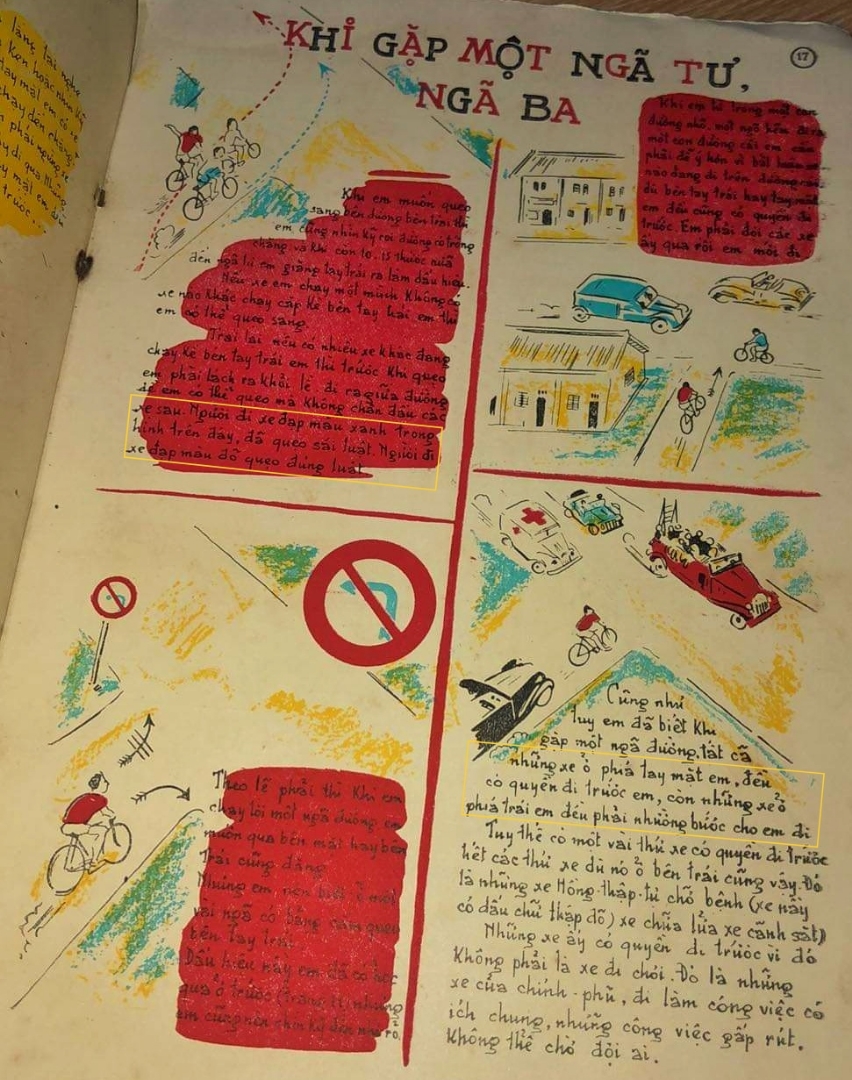 làng, tai nghe
Ken hoặc nhìn
tay mặt em có xe
chạy đến chăng?
phải ngừng xe
đi qua
mặt em đi
trước...
17
KHI GẶP MỘT NGÃ TƯ,
NGÃ BA
Khi em muốn queo
sang bên đường bên trái thì
em cũng nhìn kỹ coi đường có trống
chăng. và khi còn 10. 15 thước nữa
đến ngã tư em giăng tay trái ra làm dấu hiệu.
Nếu xe em chạy một mình Không có
xe nào Khác chạy cặp kè bên tay trái em thì
em có thể queo sang.
Trái lại nếu có nhiều xe khác đang
chạy Kè bên tay trái em thì trước khi queo
em phải lách ra khỏi lề đi ra giữa đường
để em có thể queo mà Không chận đầu các
xe sau. Người đi xe đạp màu xanh trong
hình trên đây, đã queo sái luật. Người đi
xe đạp màu đỏ queo đúng luật
Khi em từ trong một con
đường nhỏ, một ngõ hẻm đi ra
một con đường cái em cần
phải để ý hơn vì bất luận xe
nào đang đi trên đường cái
dù bên tay trái hay tay mặt
em đều cũng có quyền đi
trước. Em phải đợi các xe
ấy qua rồi em mới đi
Theo lẽ phải thì Khi em
chạy tới một ngã đường em
muốn qua bên mặt hay bên
Trái cũng đặng
Nhưng em nên biết ở một
vài ngã có bảng cấm queo
bên tay trái
Dấu hiệu này em đã có học
qua ở trước (trang 11) nhưng
em cũng nên nhìn kỹ đến nữa
Cũng như
tuy em đã biết Khi
gặp một ngã đường, tất cả
những xe ở phía tay mặt em, đều
có quyền đi trước em, còn những xe ở
phía trái em đều phải nhường bước cho em đi
Tuy thế có một vài thứ xe có quyền đi trước
hết các thứ xe dù nó ở bên trái cũng vậy. Đó
là những xe Hồng-thập-tự chở bệnh (xe này
có dấu chữ thập đỏ) xe chữa lửa xe cảnh sát)
Những xe ấy có quyền đi trước vì đó
Không phải là xe đi chơi. Đó là những
xe của chính-phủ, đi làm công việc có
ích chung, những công việc gấp rút.
Không thể chờ đợi ai.